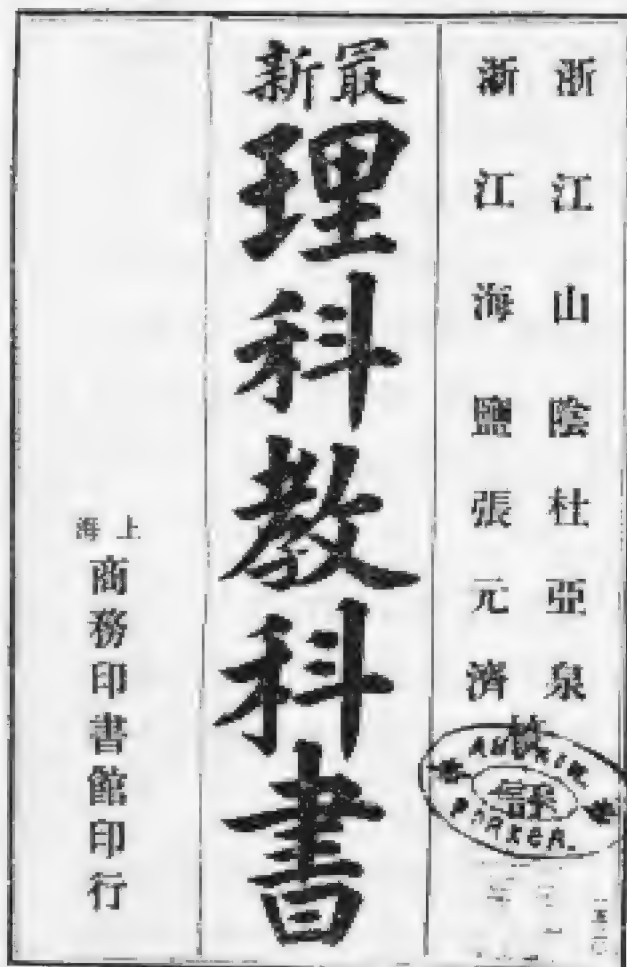 浙江山陰杜亞泉
浙江海鹽張元濟
最新
理科教科書
上海
商務印書館印行